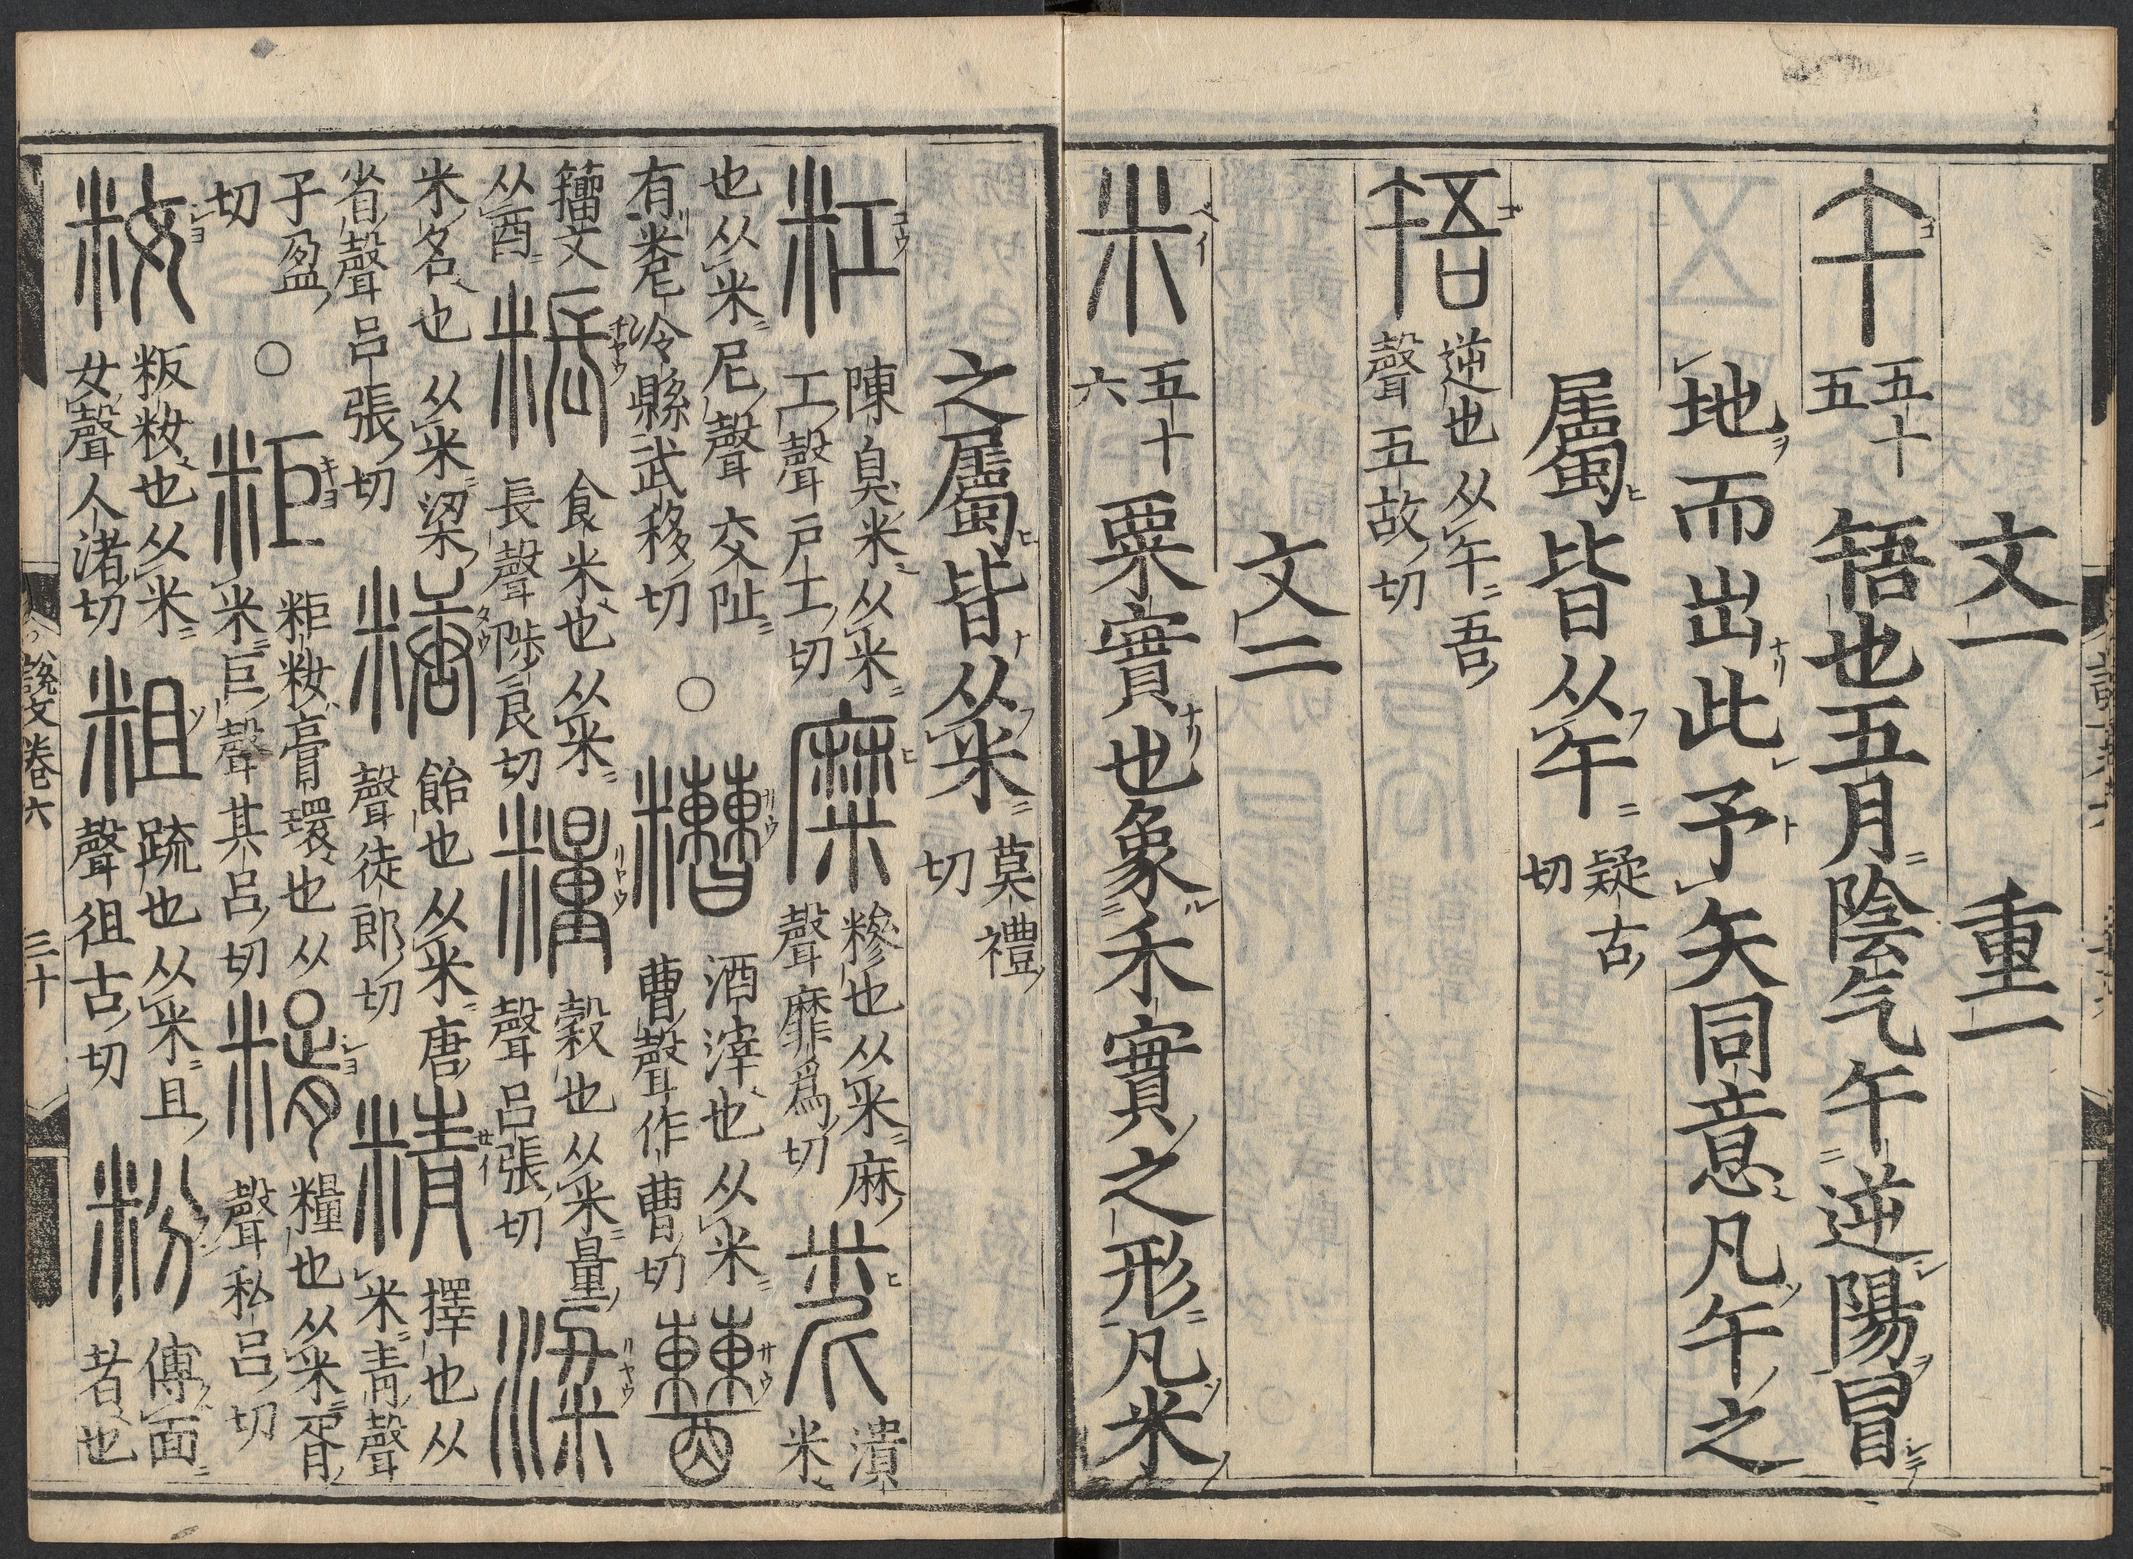 文一　重一
午 五十五 啎也五月陰气午逆陽冒
地而出此予矢同意凡午之
屬皆从午 疑古切
啎 逆也从午吾聲五故切
文二
米 五十六 粟實也象禾實之形凡米
之屬皆从米 莫禮切
粠 陳臭米从米工聲戶工切 糜 糝也从米麻聲靡爲切 𥹆 潰米
也从米尼聲交阯有𥹆冷縣武移切 ○ 糟 酒滓也从米曹聲作曹切 𨢠
籒文从酉 粻 食米也从米長聲陟良切 糧 穀也从米量聲呂張切 粱
米名也从米梁省聲呂張切 糖 飴也从米唐聲徒郎切 精 擇也从米青聲
子盈切 ○ 粔 粔籹膏環也从米巨聲其呂切 糈 糧也从米胥聲私呂切
籹 粄籹也从米女聲人渚切 粗 疏也从米且聲徂古切 粉 傅面者也
說文卷六　三十